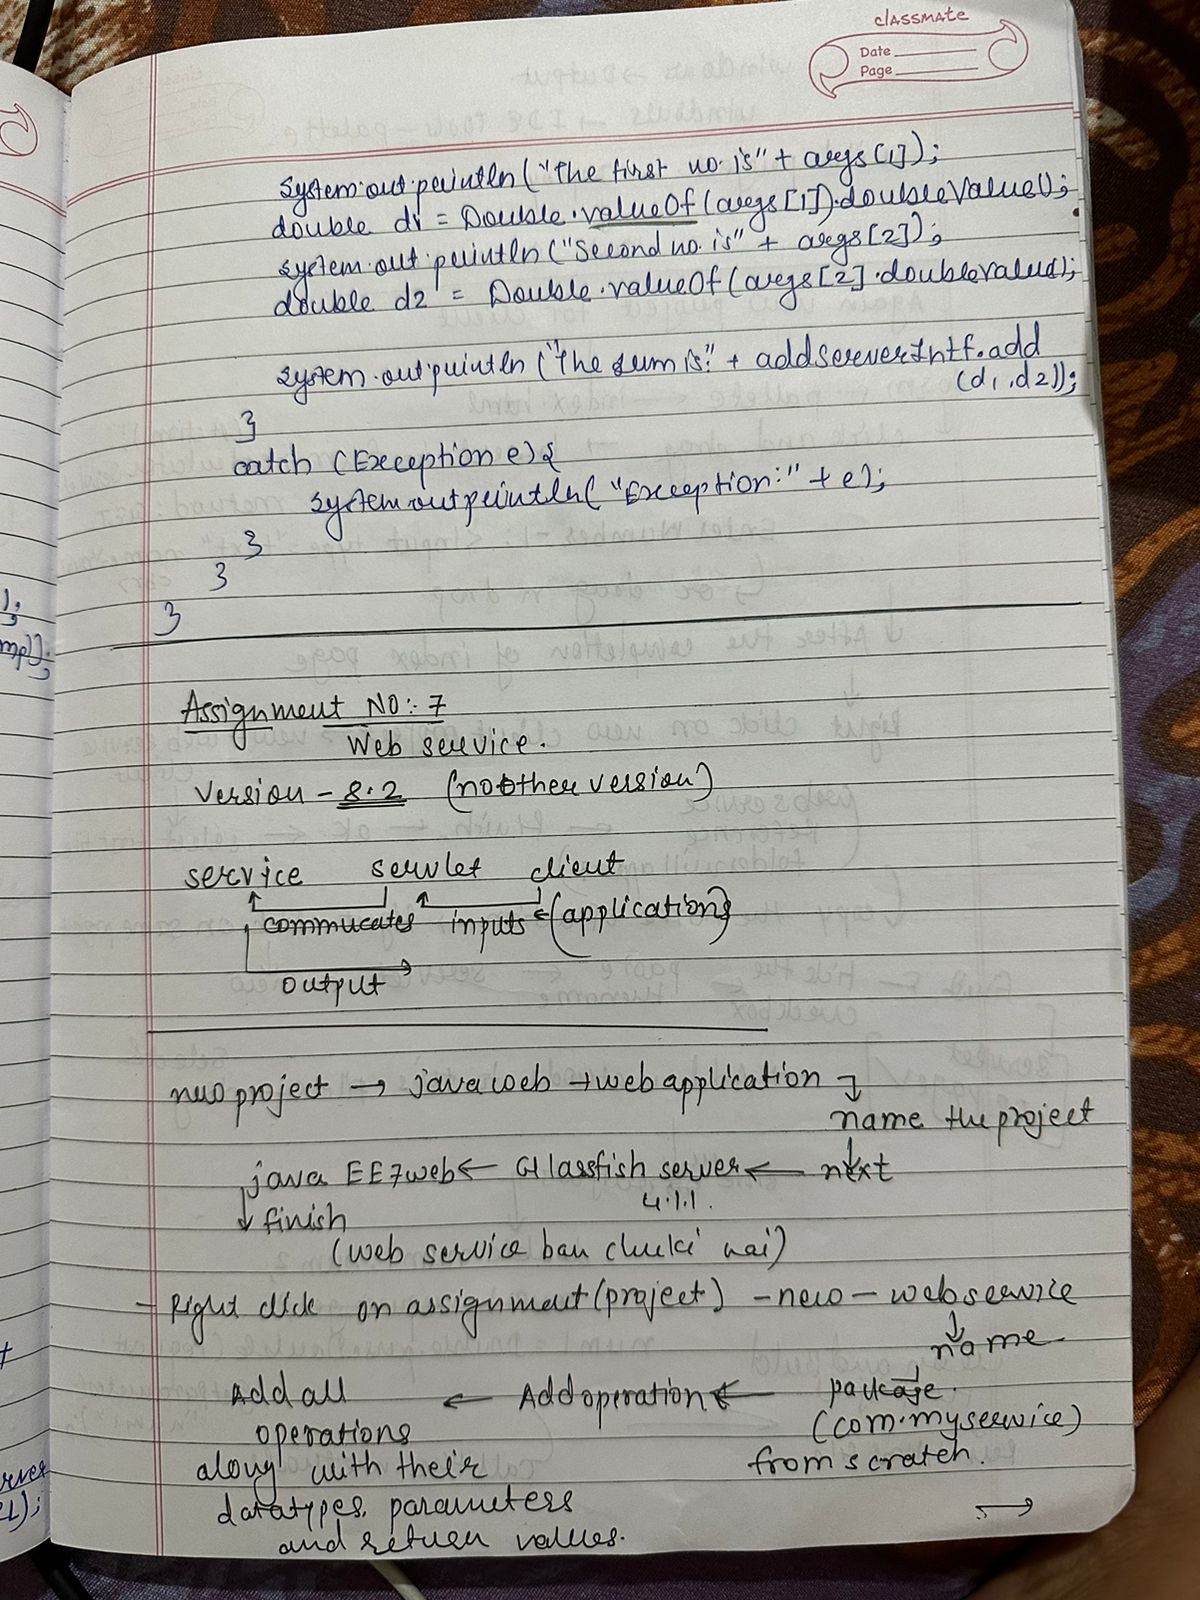 classmate
Date
Page
System.out.println("The first no. is" + args[1]);
double d1 = Double.valueOf(args[1]).doubleValue();
System.out.println("Second no. is" + args[2]);
double d2 = Double.valueOf(args[2].doubleValue();
System.out.println("The sum is:" + addServerIntf.add
(d1,d2));
}
catch (Exception e){
System.out.println("Exception:" + e);
}
}
}
Assignment NO:- 7
Web service.
version - 8.2 (no other version)
service servlet client
commucates inputs (application)
output
new project → java web → web application
name the project
java EE7 web ← Glassfish server ← next
4.1.1.
finish
(web service ban chuki hai)
- Right click on assignment (project) - new - webservice
name
Add all ← Add operation ← package.
operations (com.myservice)
along with their from scratch.
datatypes, parameters →
and return values.